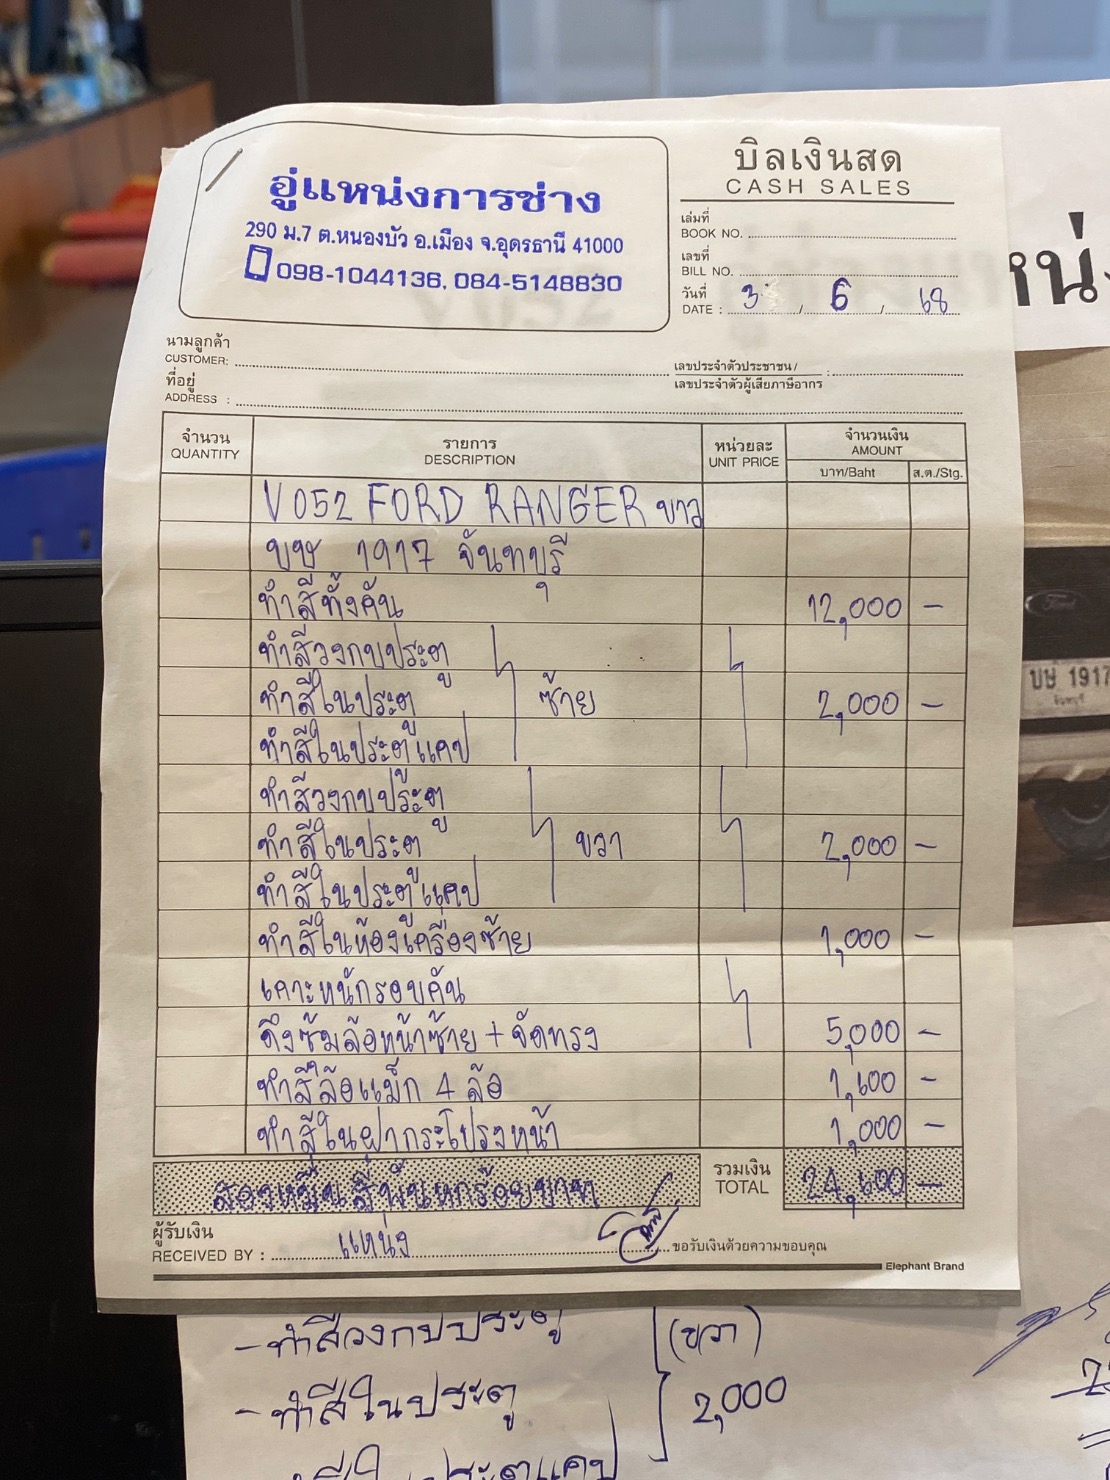 อู่แหน่งการช่าง
290 ม.7 ต.หนองบัว อ.เมือง จ.อุดรธานี 41000
098-1044136, 084-5148830
บิลเงินสด
CASH SALES
เล่มที่
BOOK NO.
เลขที่
BILL NO.
วันที่
DATE : 3 / 6 / 68
นามลูกค้า
CUSTOMER:
เลขประจำตัวประชาชน/ :
เลขประจำตัวผู้เสียภาษีอากร
ที่อยู่
ADDRESS :
จำนวน รายการ หน่วยละ จำนวนเงิน
QUANTITY DESCRIPTION UNIT PRICE AMOUNT
บาท/Baht ส.ต./Stg.
V052 FORD RANGER ขาว
บษ 1917 จันทบุรี
ทำสีทั้งคัน 12,000 -
ทำสีวงกบประตู
ทำสีในประตู ซ้าย 2,000 -
ทำสีในประตูแคป
ทำสีวงกบประตู
ทำสีในประตู ขวา 2,000 -
ทำสีในประตูแคป
ทำสีในห้องเครื่องซ้าย 1,000 -
เคาะหนักรอบคัน
ดึงซุ้มล้อหน้าซ้าย + จัดทรง 5,000 -
ทำสีล้อแม็ก 4 ล้อ 1,600 -
ทำสีในฝากระโปรงหน้า 1,000 -
สองหมื่นสี่พันหกร้อยบาท รวมเงิน 24,600 -
TOTAL
ผู้รับเงิน
RECEIVED BY : แหน่ง ขอรับเงินด้วยความขอบคุณ
Elephant Brand
หน่
บษ 1917
- ทำสีวงกบประตู (ขวา)
- ทำสีในประตู 2,000